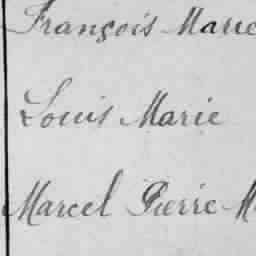 François Marie
Louis Marie
Marcel Pierre M